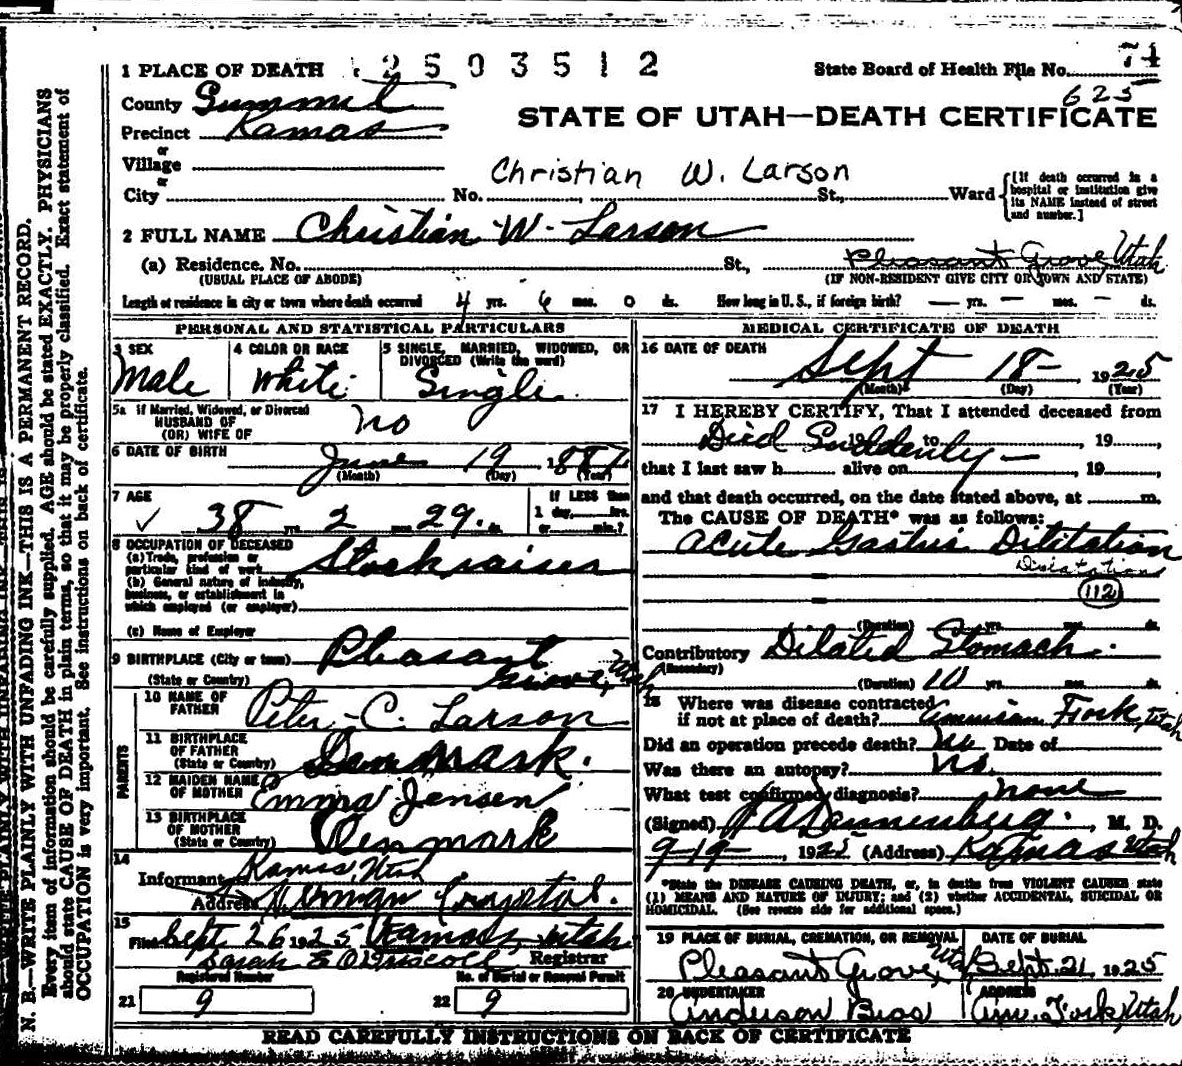 1 PLACE OF DEATH 2503512 State Board of Health File No. 74
625
County Summit
STATE OF UTAH—DEATH CERTIFICATE
Precinct Kamas
or
Village
Christian W. Larson
or
City No. St., Ward [If death occurred in a hospital or institution give its NAME instead of street and number.]
2 FULL NAME Christian W. Larson
(a) Residence. No. St., Pleasant Grove, Utah
(USUAL PLACE OF ABODE) (IF NON-RESIDENT GIVE CITY OR TOWN AND STATE)
Length of residence in city or town where death occurred 4 yrs. 6 mos. 0 ds. How long in U. S., if foreign birth? — yrs. — mos. — ds.
PERSONAL AND STATISTICAL PARTICULARS
3 SEX
Male
4 COLOR OR RACE
White
5 SINGLE, MARRIED, WIDOWED, OR
DIVORCED (Write the word)
Single
5a If Married, Widowed, or Divorced
HUSBAND OF
(OR) WIFE OF
no
6 DATE OF BIRTH
June 19 1887
(Month) (Day) (Year)
7 AGE
38 yrs. 2 mos. 29. ds.
If LESS than
1 day, hrs.
or min.?
8 OCCUPATION OF DECEASED
(a) Trade, profession or
particular kind of work Stockraiser
(b) General nature of industry,
business, or establishment in
which employed (or employer)
(c) Name of Employer
9 BIRTHPLACE (City or town) Pleasant
(State or Country) Grove, Utah
PARENTS
10 NAME OF
FATHER Peter C. Larson
11 BIRTHPLACE
OF FATHER
(State or Country) Denmark.
12 MAIDEN NAME
OF MOTHER Emma Jensen
13 BIRTHPLACE
OF MOTHER
(State or Country) Denmark
14
Informant Kamas, Utah
Address Herman
15
Filed Sept 26 1925 Kamas, Utah
Sarah E O'Driscoll Registrar
Registered Number No. of Burial or Removal Permit
21 9 22 9
MEDICAL CERTIFICATE OF DEATH
16 DATE OF DEATH
Sept 18 — 1925
(Month) (Day) (Year)
17 I HEREBY CERTIFY, That I attended deceased from
Died Suddenly — 19 to , 19 ,
that I last saw h alive on , 19 ,
and that death occurred, on the date stated above, at m.
The CAUSE OF DEATH* was as follows:
Acute Dilitation
112
(Duration) yrs. mos. ds.
Contributory Dilated Stomach.
(Secondary)
(Duration) 10 yrs. mos. ds.
18 Where was disease contracted
if not at place of death? American Fork, Utah
Did an operation precede death? No Date of
Was there an autopsy? No.
What test confirmed diagnosis? none
(Signed) Dannenberg. , M. D.
9-19- , 1925 (Address) Kamas Utah
*State the DISEASE CAUSING DEATH, or, in deaths from VIOLENT CAUSES state
(1) MEANS AND NATURE OF INJURY; and (2) whether ACCIDENTAL, SUICIDAL OR
HOMICIDAL. (See reverse side for additional space.)
19 PLACE OF BURIAL, CREMATION, OR REMOVAL
Pleasant Grove, Utah
DATE OF BURIAL
Sept. 21 1925
20 UNDERTAKER
Anderson Bros
ADDRESS
Am. Fork, Utah
READ CAREFULLY INSTRUCTIONS ON BACK OF CERTIFICATE
N. B.—WRITE PLAINLY WITH UNFADING INK—THIS IS A PERMANENT RECORD.
Every item of information should be carefully supplied. AGE should be stated EXACTLY. PHYSICIANS
should state CAUSE OF DEATH in plain terms, so that it may be properly classified. Exact statement of
OCCUPATION is very important. See instructions on back of certificate.